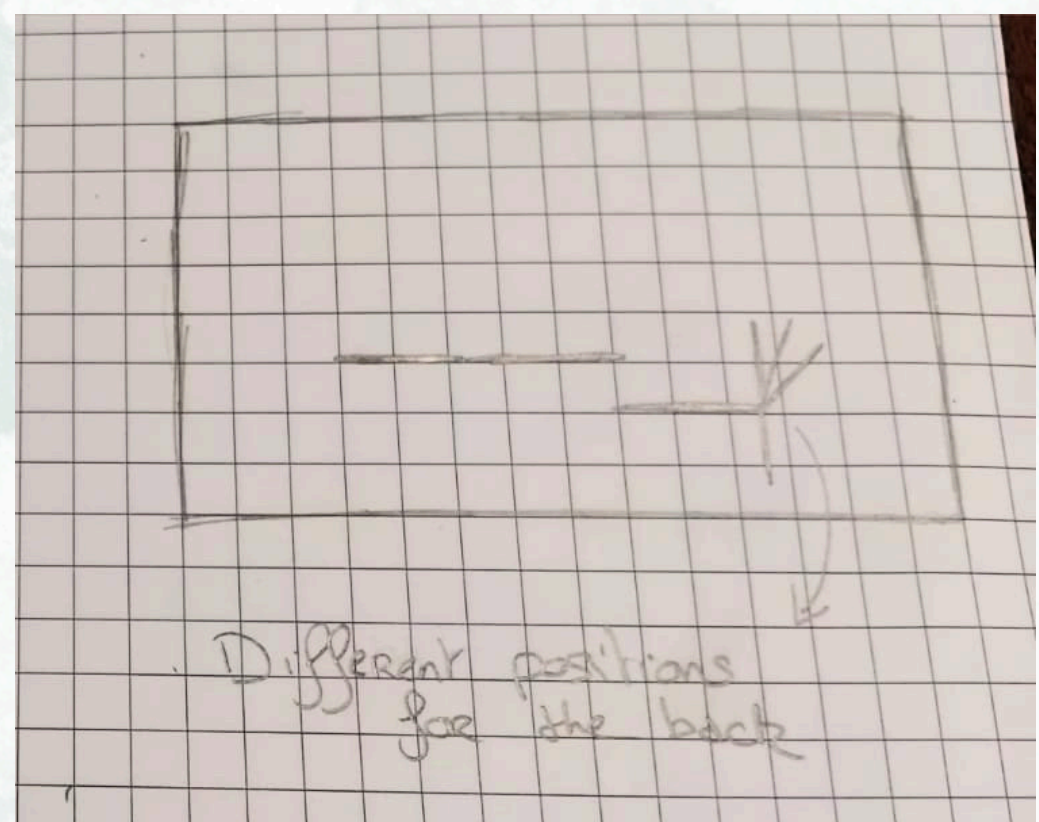 Different positions
for the back